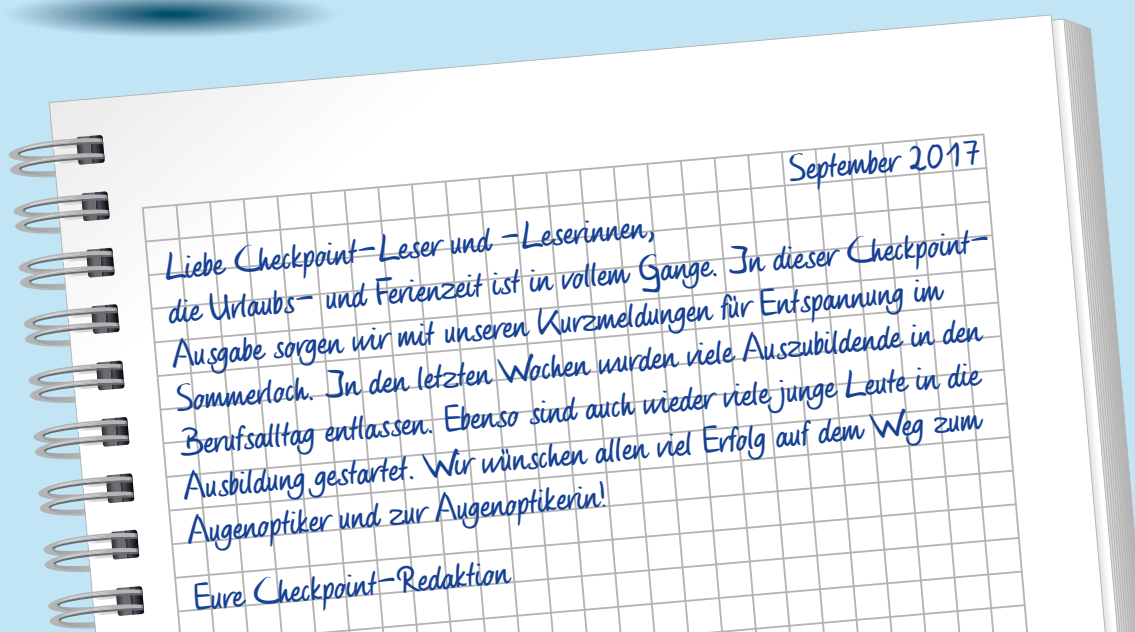 September 2017
Liebe Checkpoint-Leser und -Leserinnen,
die Urlaubs- und Ferienzeit ist in vollem Gange. In dieser Checkpoint-
Ausgabe sorgen wir mit unseren Kurzmeldungen für Entspannung im
Sommerloch. In den letzten Wochen wurden viele Auszubildende in den
Berufsalltag entlassen. Ebenso sind auch wieder viele junge Leute in die
Ausbildung gestartet. Wir wünschen allen viel Erfolg auf dem Weg zum
Augenoptiker und zur Augenoptikerin!
Eure Checkpoint-Redaktion